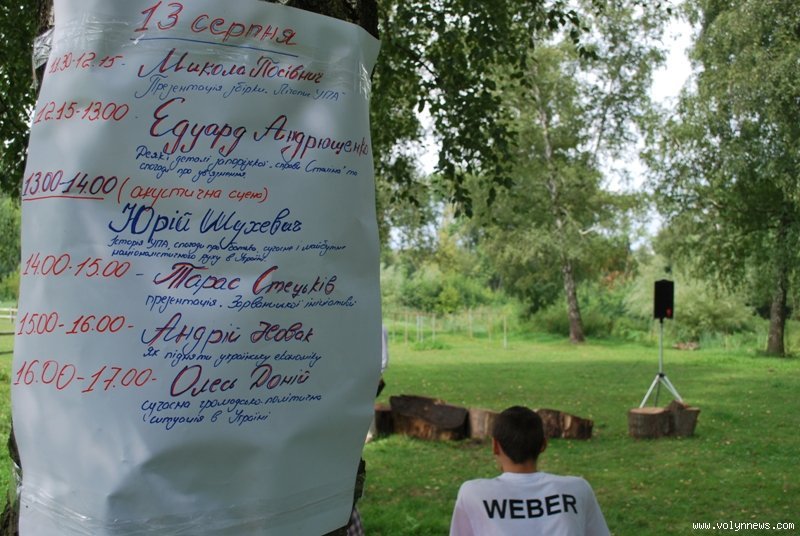 13 серпня
11.30-12.15- Микола Посівнич
Презентація збірки „Літопис УПА"
12.15-13.00 Едуард Андрющенко
Деякі деталі запорізької „справи Сталіна" та
спогади про ув'язнення
13.00-14.00 (акустична сцена)
Юрій Шухевич
Історія УПА, спогади про батька, сучасне і майбутнє
націоналістичного руху в Україні
14.00-15.00 - Тарас Стецьків
презентація „Зарваницької ініціативи"
15.00-16.00- Андрій Новак
Як підняти українську економіку
16.00-17.00- Олесь Доній
сучасна громадсько-політична
ситуація в Україні
WEBER
www.volynnews.com